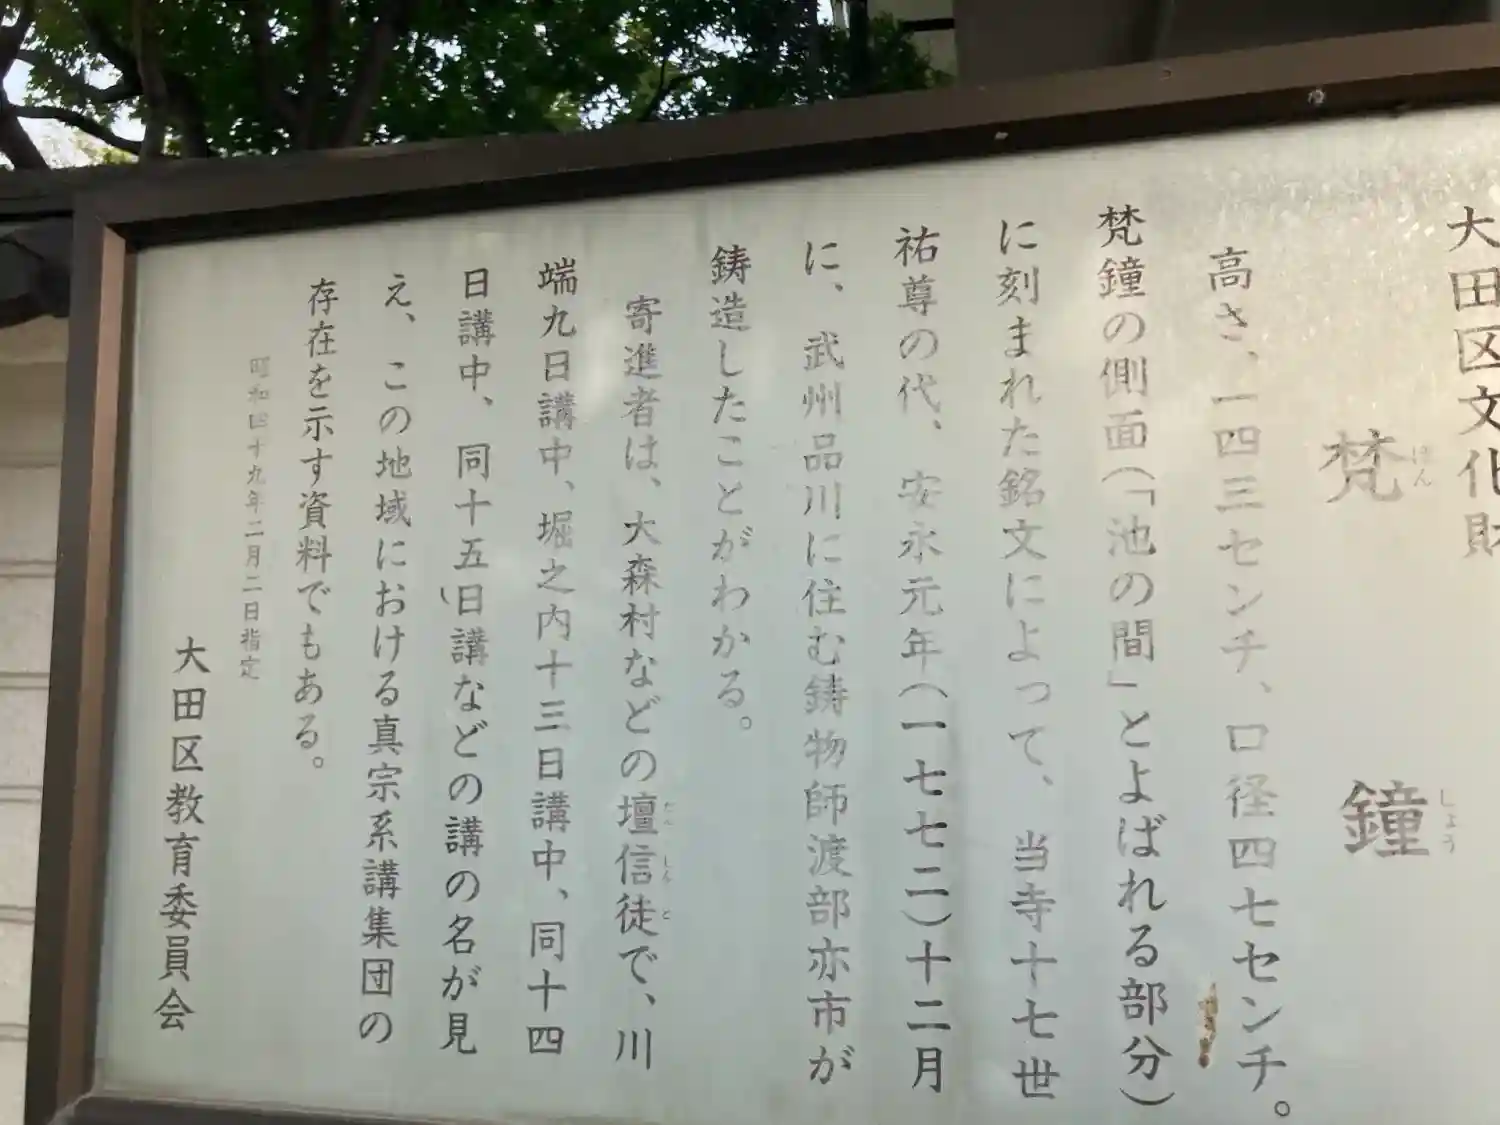 大田区文化財
梵鐘
ぼんしょう
高さ、一四三センチ、口径四七センチ。
梵鐘の側面(「池の間」とよばれる部分)
に刻まれた銘文によって、当寺十七世
祐尊の代、安永元年(一七七二)十二月
に、武州品川に住む鋳物師渡部亦市が
鋳造したことがわかる。
寄進者は、大森村などの壇信徒で、川
だんしんと
端九日講中、堀之内十三日講中、同十四
日講中、同十五日講などの講の名が見
え、この地域における真宗系講集団の
存在を示す資料でもある。
昭和四十九年二月二日指定
大田区教育委員会